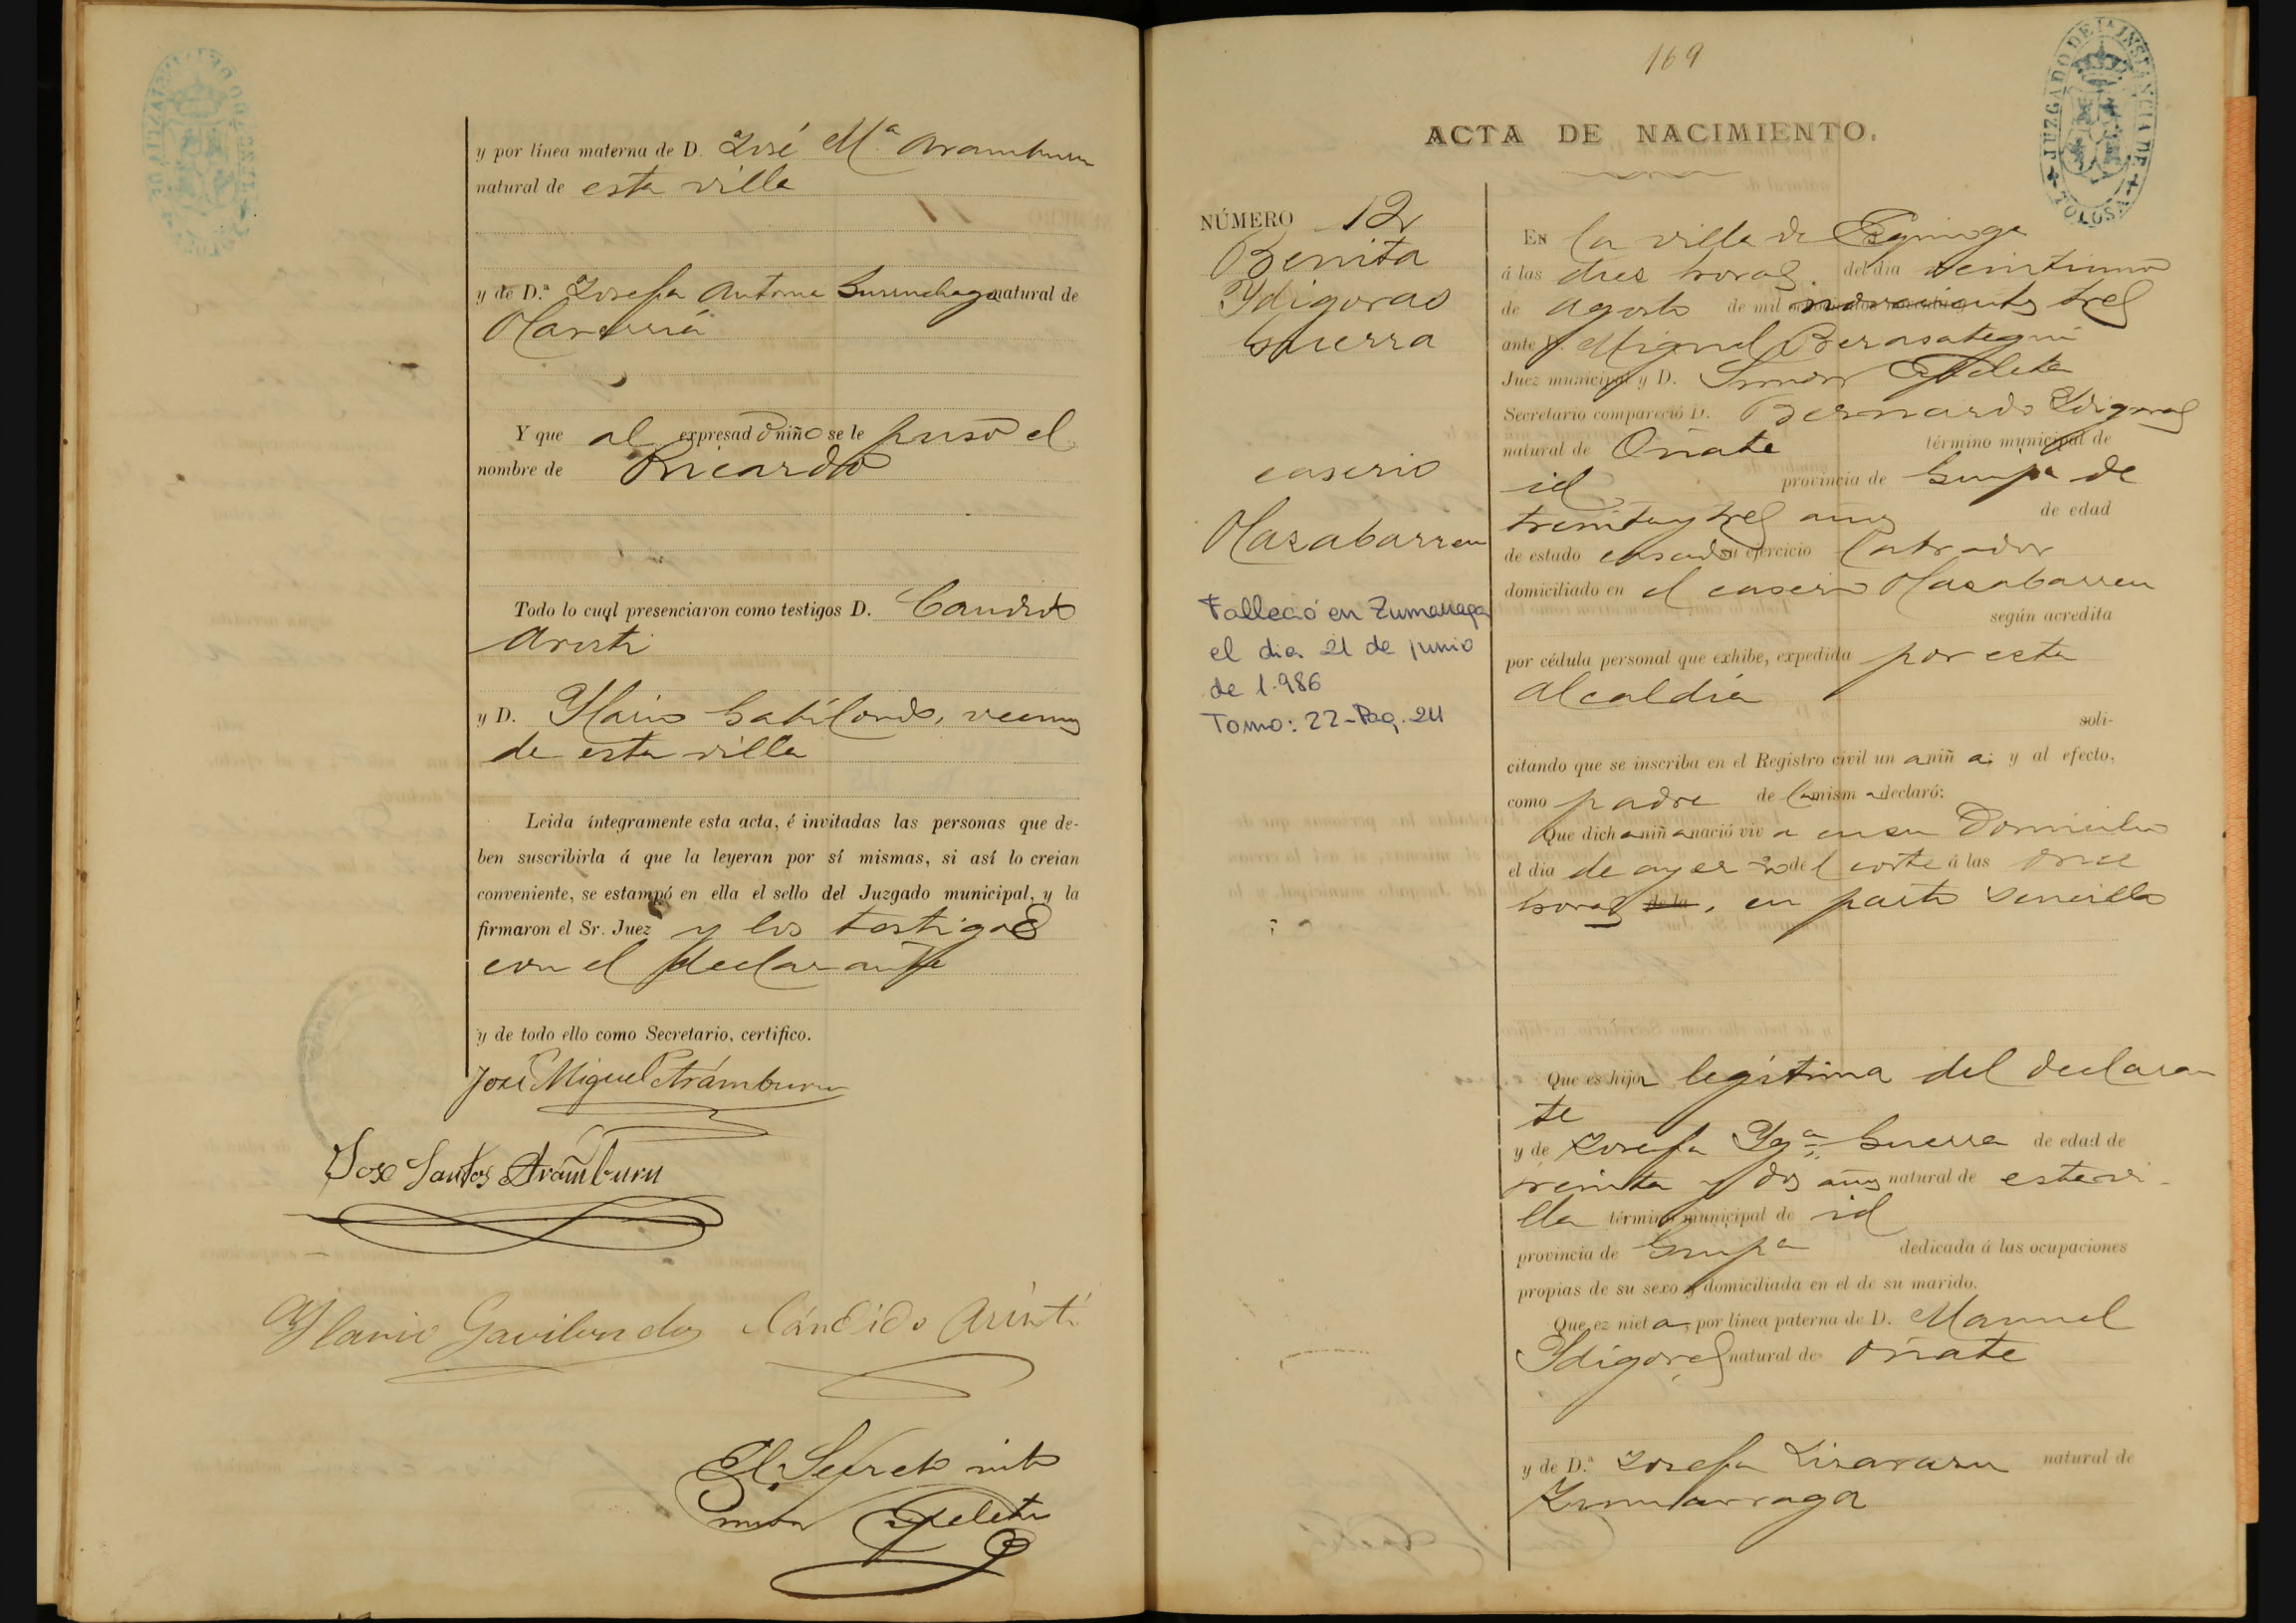 y por línea materna de D. José Mª Aramburu
natural de esta villa
y de D.ª Josefa Antonia natural de
Olaverría
Y que al expresado niño se le puso el
nombre de Ricardo
Todo lo cual presenciaron como testigos D. Candido
Aristi
y D. Ylario Gabilondo, vecinos
de esta villa
Leida íntegramente esta acta, é invitadas las personas que de-
ben suscribirla á que la leyeran por sí mismas, si así lo creian
conveniente, se estampó en ella el sello del Juzgado municipal, y la
firmaron el Sr. Juez y los testigos
con el declarante
y de todo ello como Secretario, certifico.
José Miguel Arámburu
Jose Santos Aramburu
Ylario Gavilondo Cándido Aristi
El Secretario
169
JUZGADO DE 1ª INSTANCIA DE TOLOSA
ACTA DE NACIMIENTO.
NÚMERO 12
Benita
Ydigoras
Guerra
caserio
Olazabarren
Falleció en Zumarraga
el dia 21 de junio
de 1.986
Tomo: 22-Pag. 211
En la villa de Ezquioga
á las dies horas del dia veintiuno
de agosto de mil novecientos tres
ante D. Miguel Berasategui
Juez municipal y D. Simon
Secretario compareció D. Bernardo Ydigoras
natural de Oñate término municipal de
id provincia de Guipª de
treinta y tres años de edad
de estado casado su ejercicio labrador
domiciliado en el caserio Olazabarren
según acredita
por cédula personal que exhibe, expedida por esta
Alcaldia
soli-
citando que se inscriba en el Registro civil un a niñ a; y al efecto,
como padre de la mism a declaró:
Que dich a niñ a nació viv a en su Domicilio
el dia de ayer 20 del corte á las once
horas de la, en parto sencillo
Que es hija legítima del declaran
te
y de Josefa Ygª Guerra de edad de
treinta y dos años natural de esta vi-
lla término municipal de id
provincia de Guipª dedicada á las ocupaciones
propias de su sexo y domiciliada en el de su marido.
Que ez niet a, por línea paterna de D. Manuel
Ydigoras natural de Oñate
y de D.ª Josefa Lizarazu natural de
Zumarraga